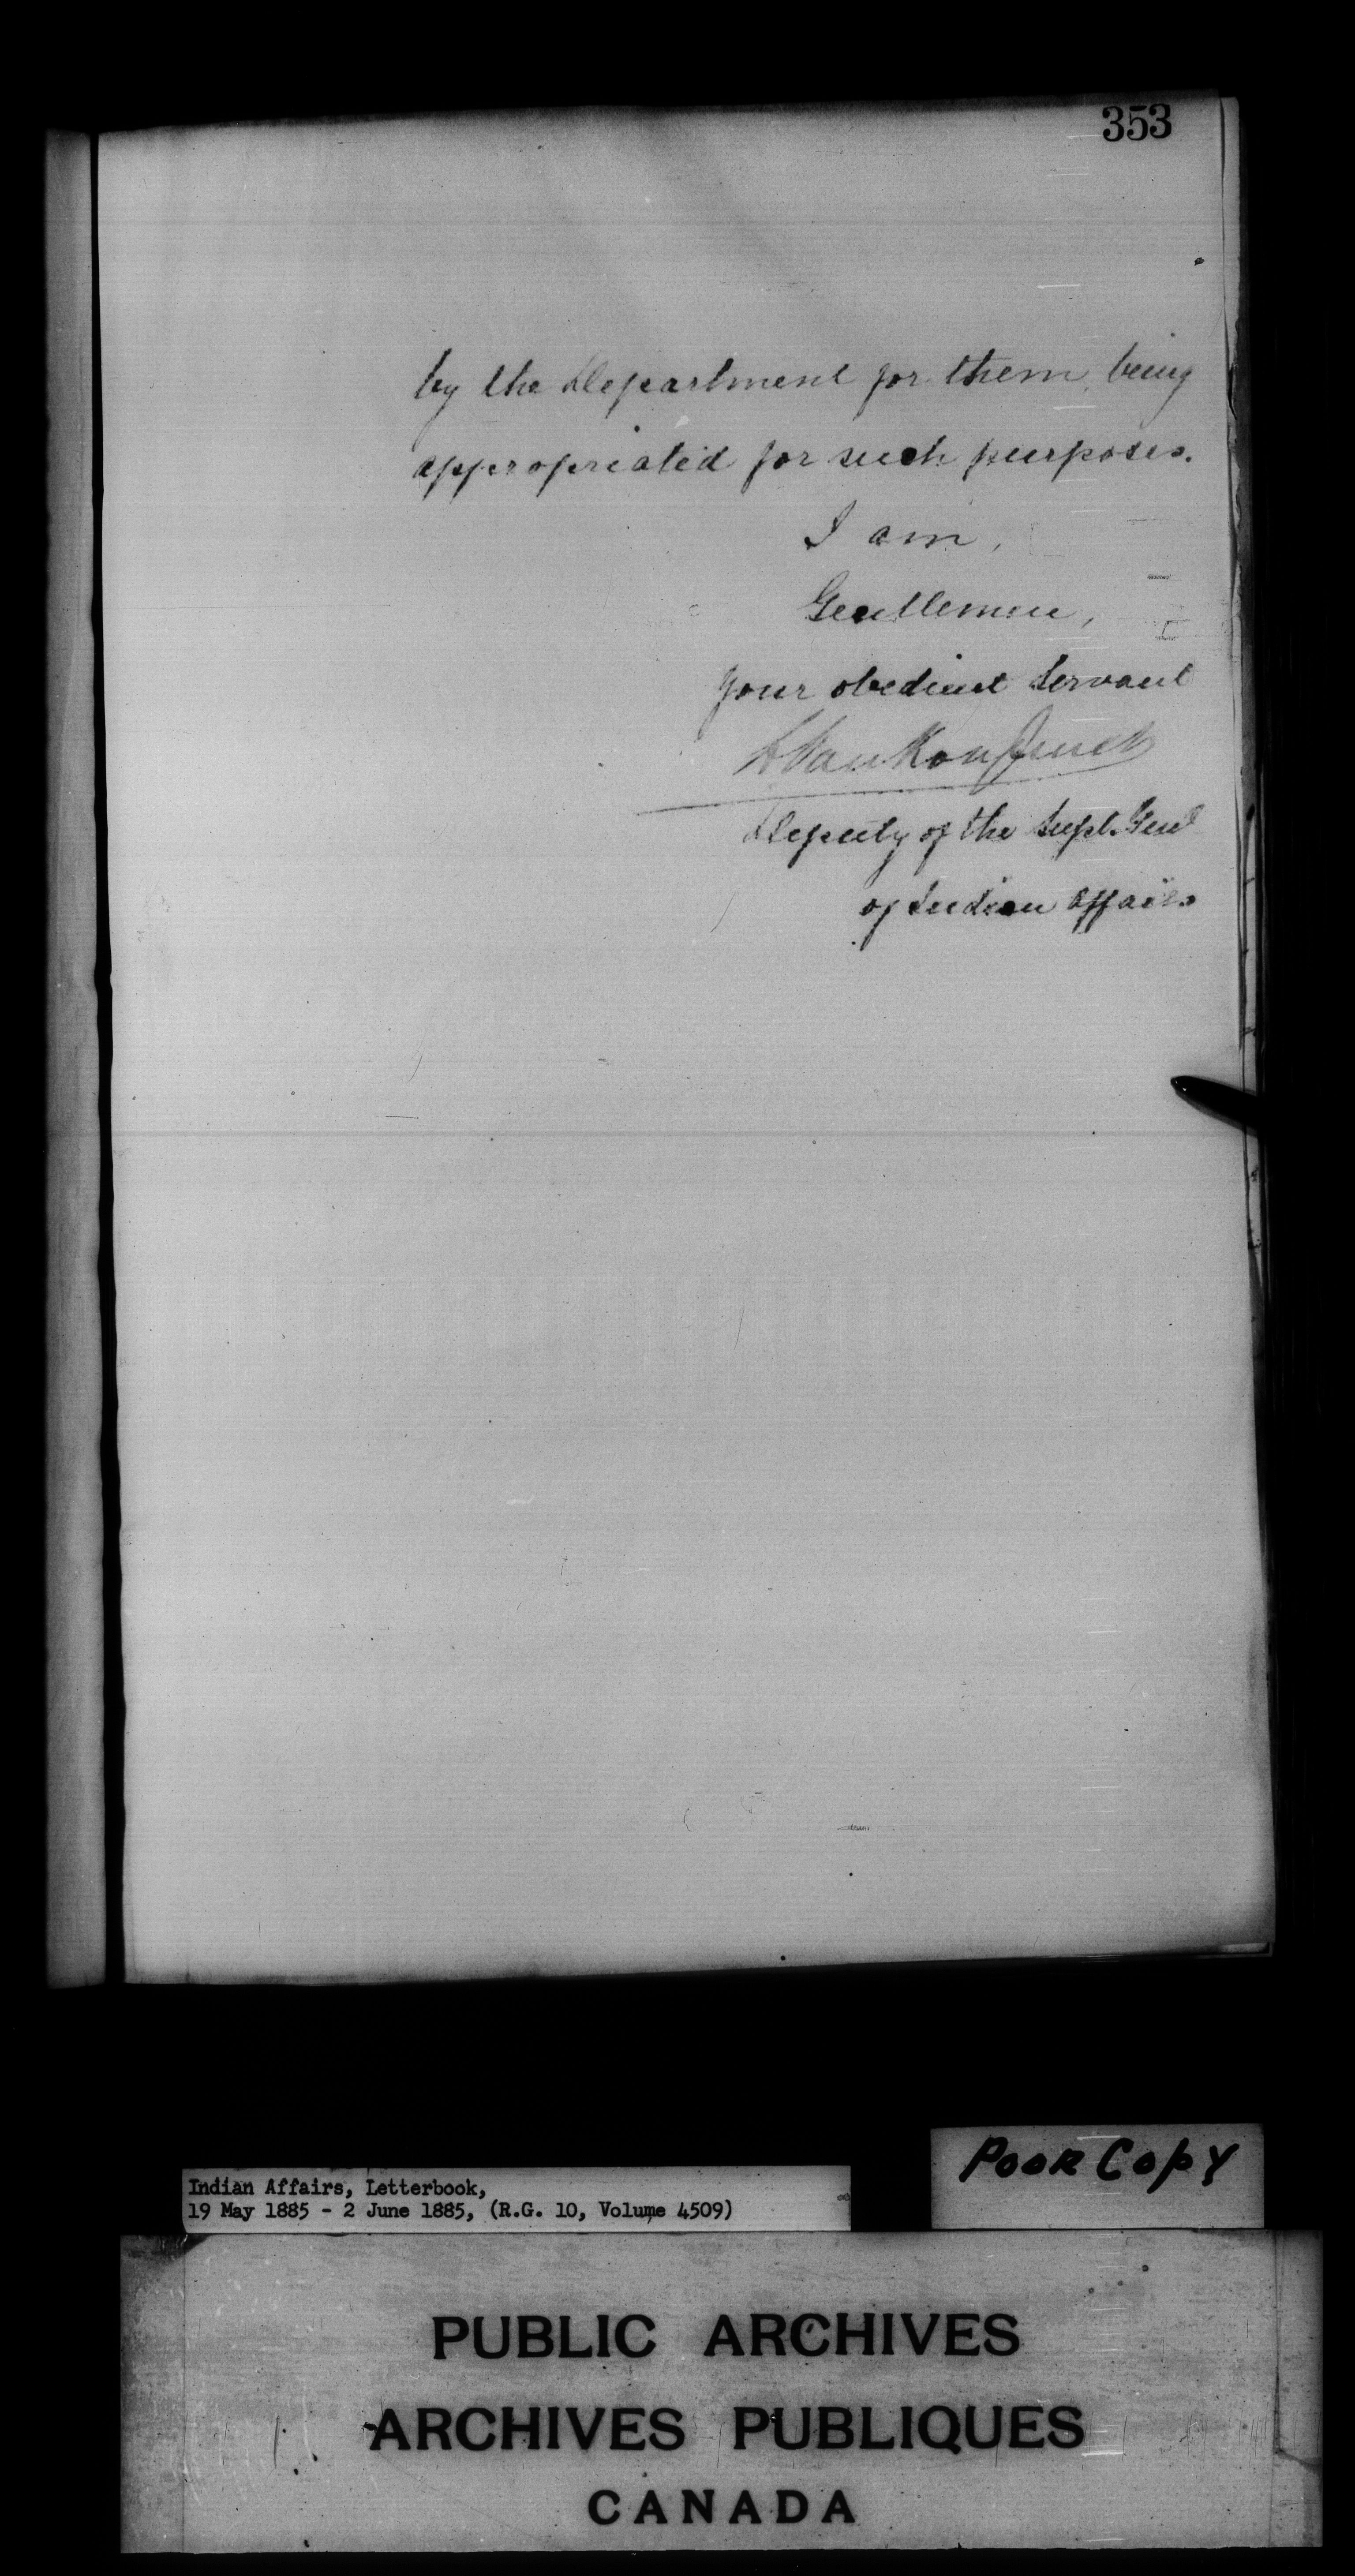 353
by the Department for them, being
appropriated for such purposes.
I am,
Gentlemen,
your obedient Servant
L VanKoughnet
Deputy of the Supt. Genl
of Indian Affairs
Poor Copy
Indian Affairs, Letterbook,
19 May 1885 - 2 June 1885, (R.G. 10, Volume 4509)
PUBLIC ARCHIVES
ARCHIVES PUBLIQUES
CANADA